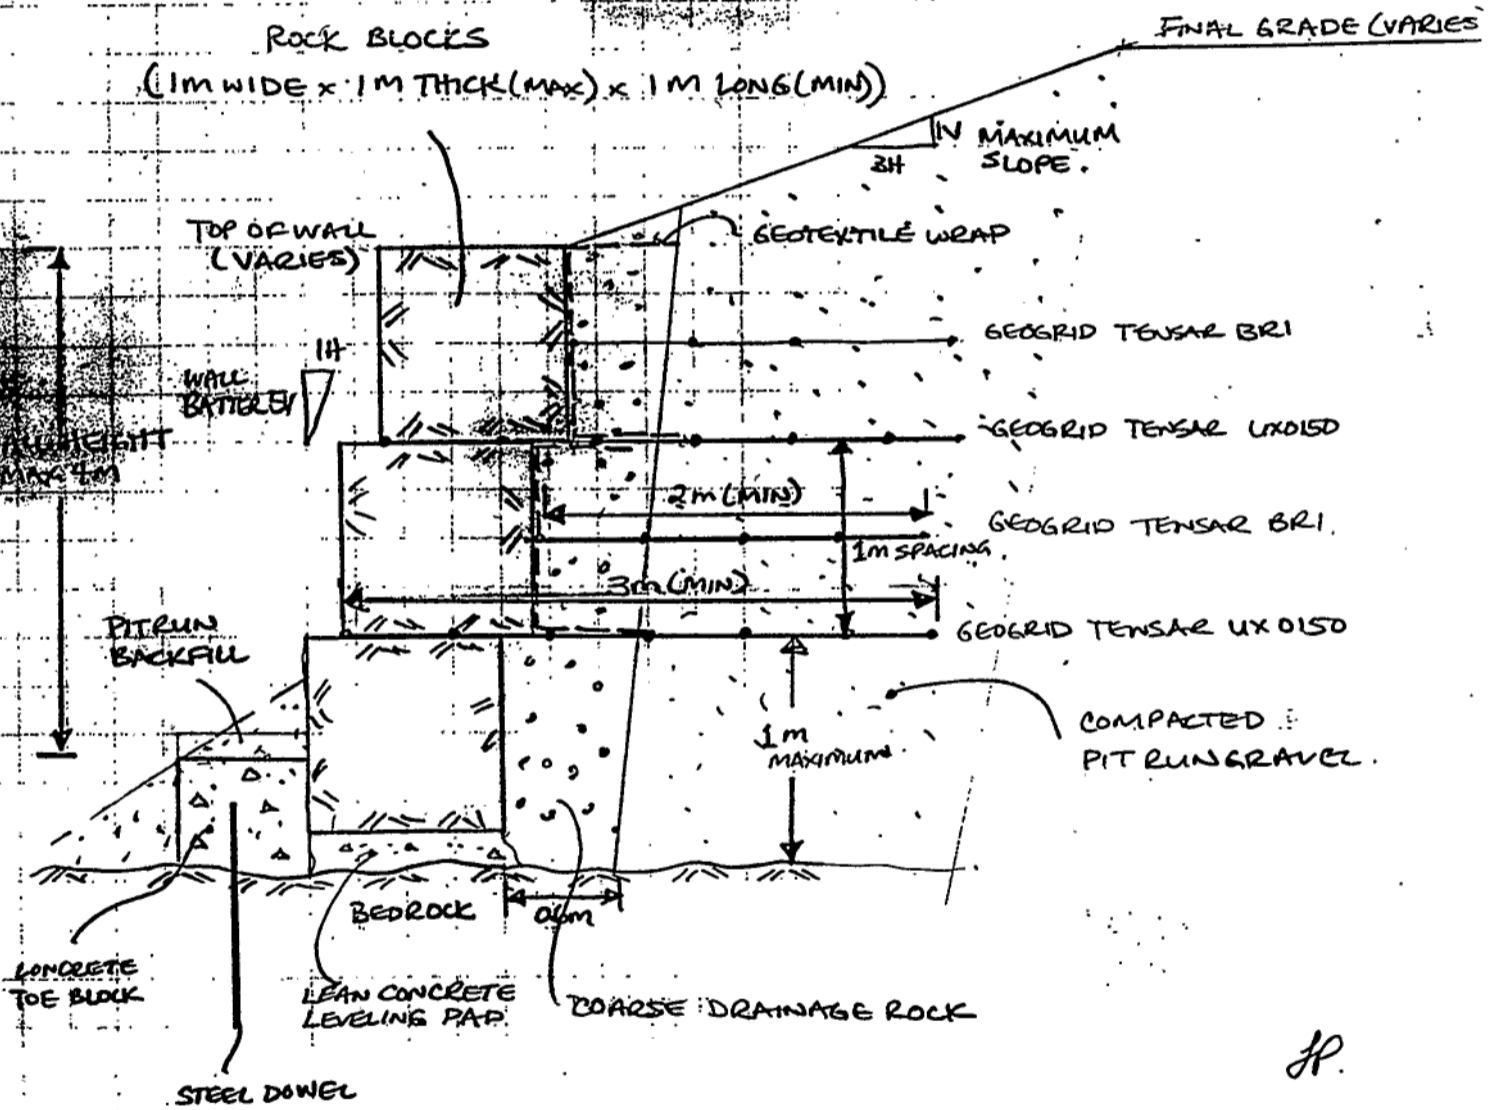 ROCK BLOCKS
(1M WIDE x 1M THICK (MAX) x 1M LONG (MIN))
FINAL GRADE (VARIES
1V MAXIMUM
3H SLOPE.
TOP OF WALL
(VARIES)
GEOTEXTILE WRAP
GEOGRID TENSAR BR1
1H
WALL
BATTER
HEIGHT
MAX 4M
GEOGRID TENSAR UX0150
2m (MIN)
GEOGRID TENSAR BR1.
1m SPACING.
3m (MIN)
GEOGRID TENSAR UX0150
PITRUN
BACKFILL
1m
MAXIMUM.
COMPACTED
PIT RUN GRAVEL.
BEDROCK
0.6m
CONCRETE
TOE BLOCK
LEAN CONCRETE
LEVELING PAD
COARSE DRAINAGE ROCK
STEEL DOWEL